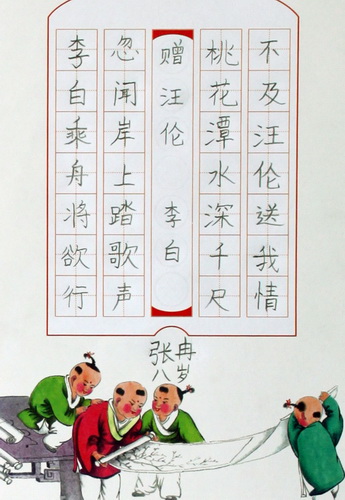 李白乘舟将欲行
忽闻岸上踏歌声
赠汪伦 李白
桃花潭水深千尺
不及汪伦送我情
张冉
八岁